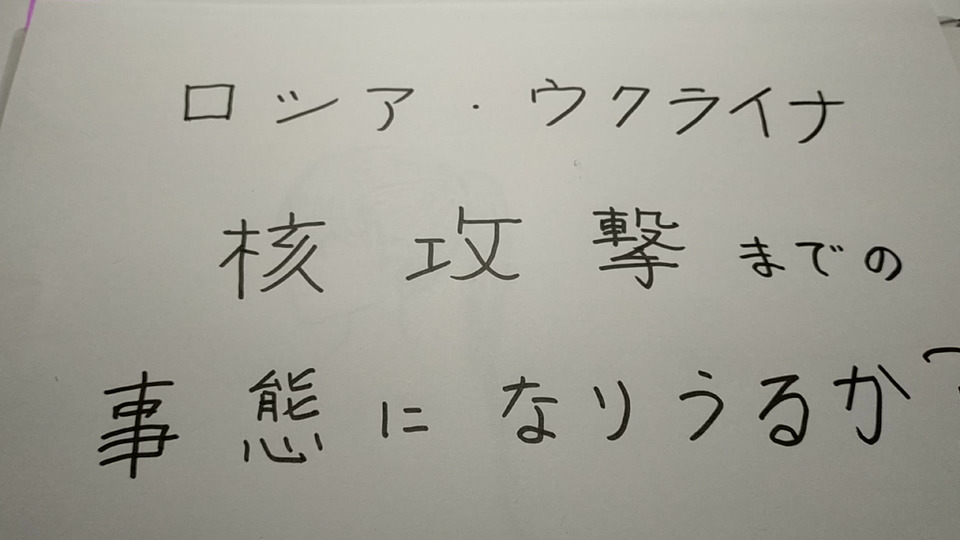 ロシア・ウクライナ
核攻撃までの
事態になりうるか?